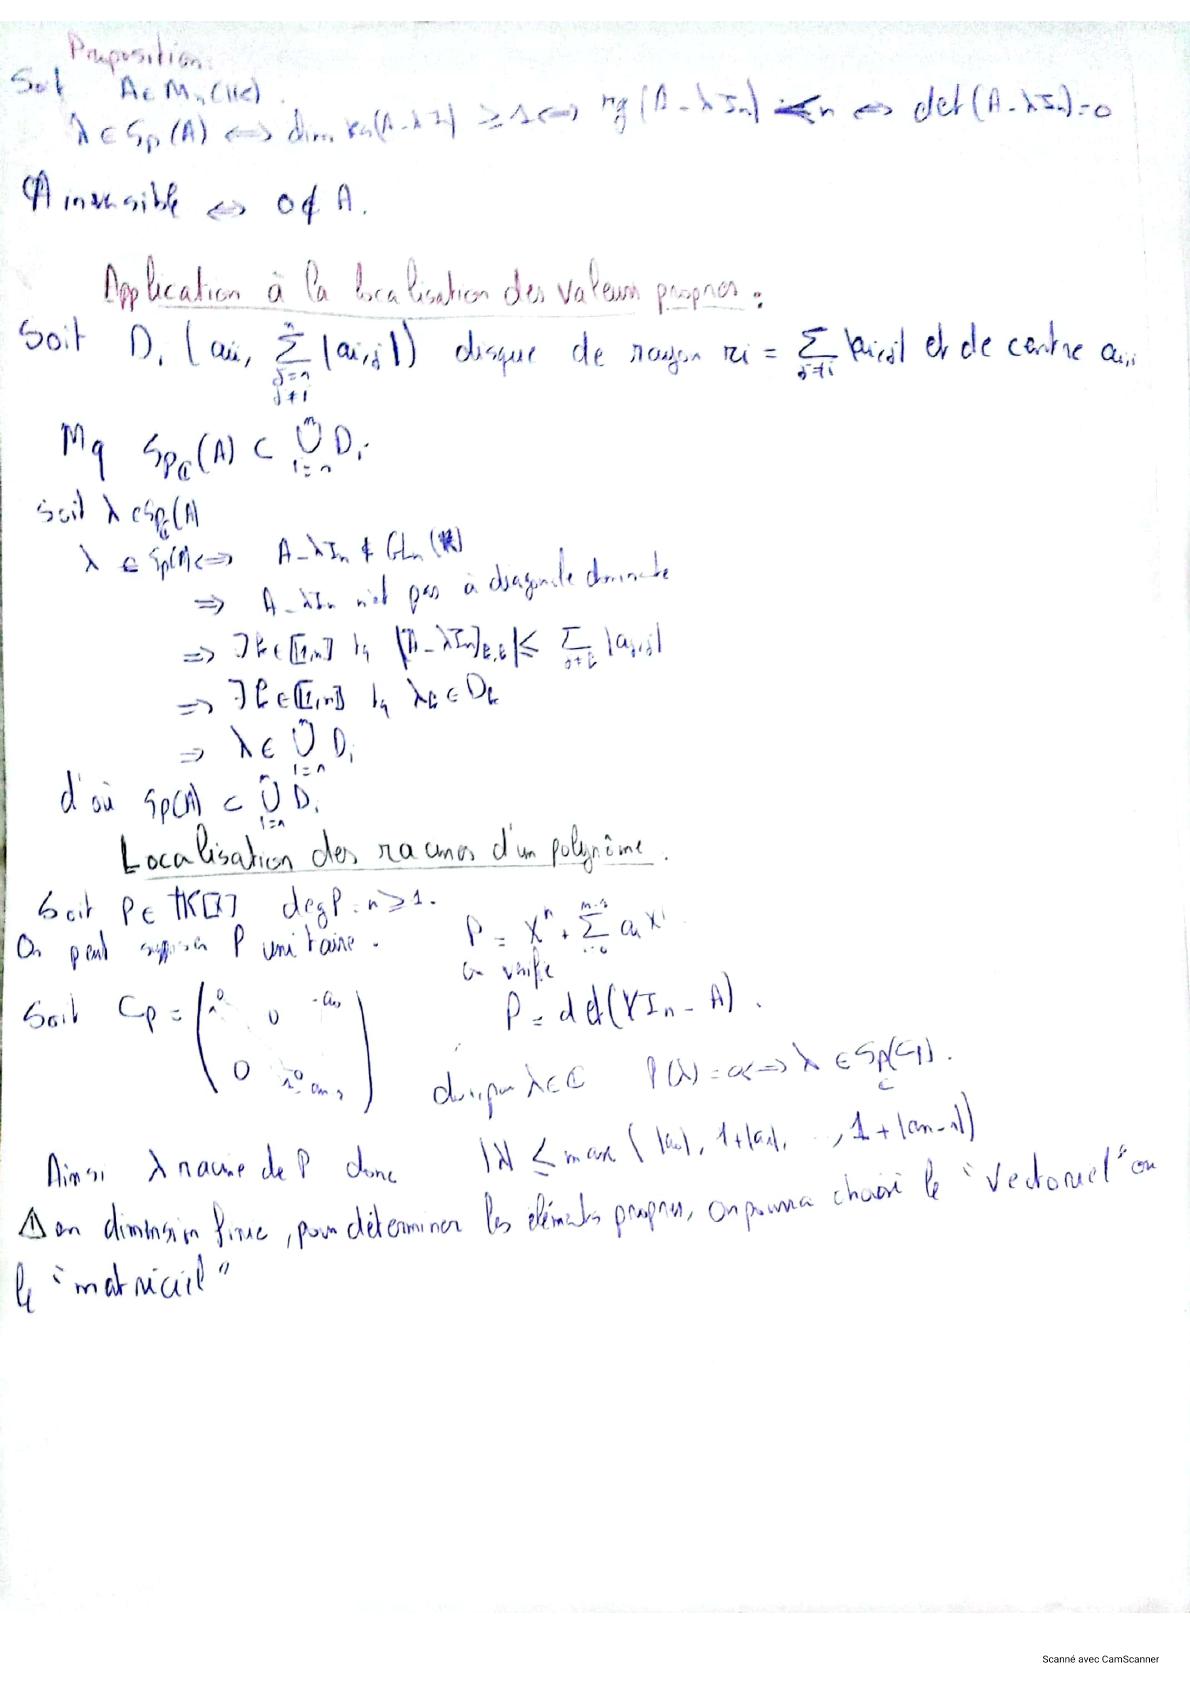 Proposition:
Soit A∈ Mn(K).
λ ∈ Sp(A) ⟺ dim Ker(A-λI) ≥ 1 ⟺ rg(A-λIn) < n ⟺ det(A-λIn)=0
A inversible ⟺ 0∉ A.
Application à la localisation des valeurs propres :
Soit Di (aii, Σ_{j=1, j≠i}^{n} |ai,j|) disque de rayon ri = Σ_{j≠i} |ai,j| et de centre ai,i
Mq Sp_C(A) ⊂ ∪_{i=1}^{n} Di
Soit λ ∈ Sp_C(A)
λ ∈ Sp(A) ⟺ A-λIn ∉ GLn(K)
⟹ A-λIn n'est pas à diagonale dominante
⟹ ∃k∈[[1,n]] tq |[A-λIn]k,k| ≤ Σ_{j≠k} |ak,j|
⟹ ∃k∈[[1,n]] tq λk ∈ Dk
⟹ λ∈ ∪_{i=1}^{n} Di
d'où Sp(A) ⊂ ∪_{i=1}^{n} Di
Localisation des racines d'un polynôme.
Soit P∈ K[X] deg P = n ≥ 1.
On peut supposer P unitaire. P = X^n + Σ_{i=0}^{n-1} ai X^i
on vérifie
Soit Cp = (0 0 -a0 1 0 1 0 -an-1) P = det(XIn - A).
donc pour λ∈C P(λ)=0 ⟺ λ ∈ Sp_C(Cp).
Ainsi λ racine de P donc |λ| ≤ max(|a0|, 1+|a1|, ..., 1+|an-1|)
⚠ en dimension finie, pour déterminer les éléments propres, on pourra choisir le "vectoriel" ou
le "matriciel"
Scanné avec CamScanner